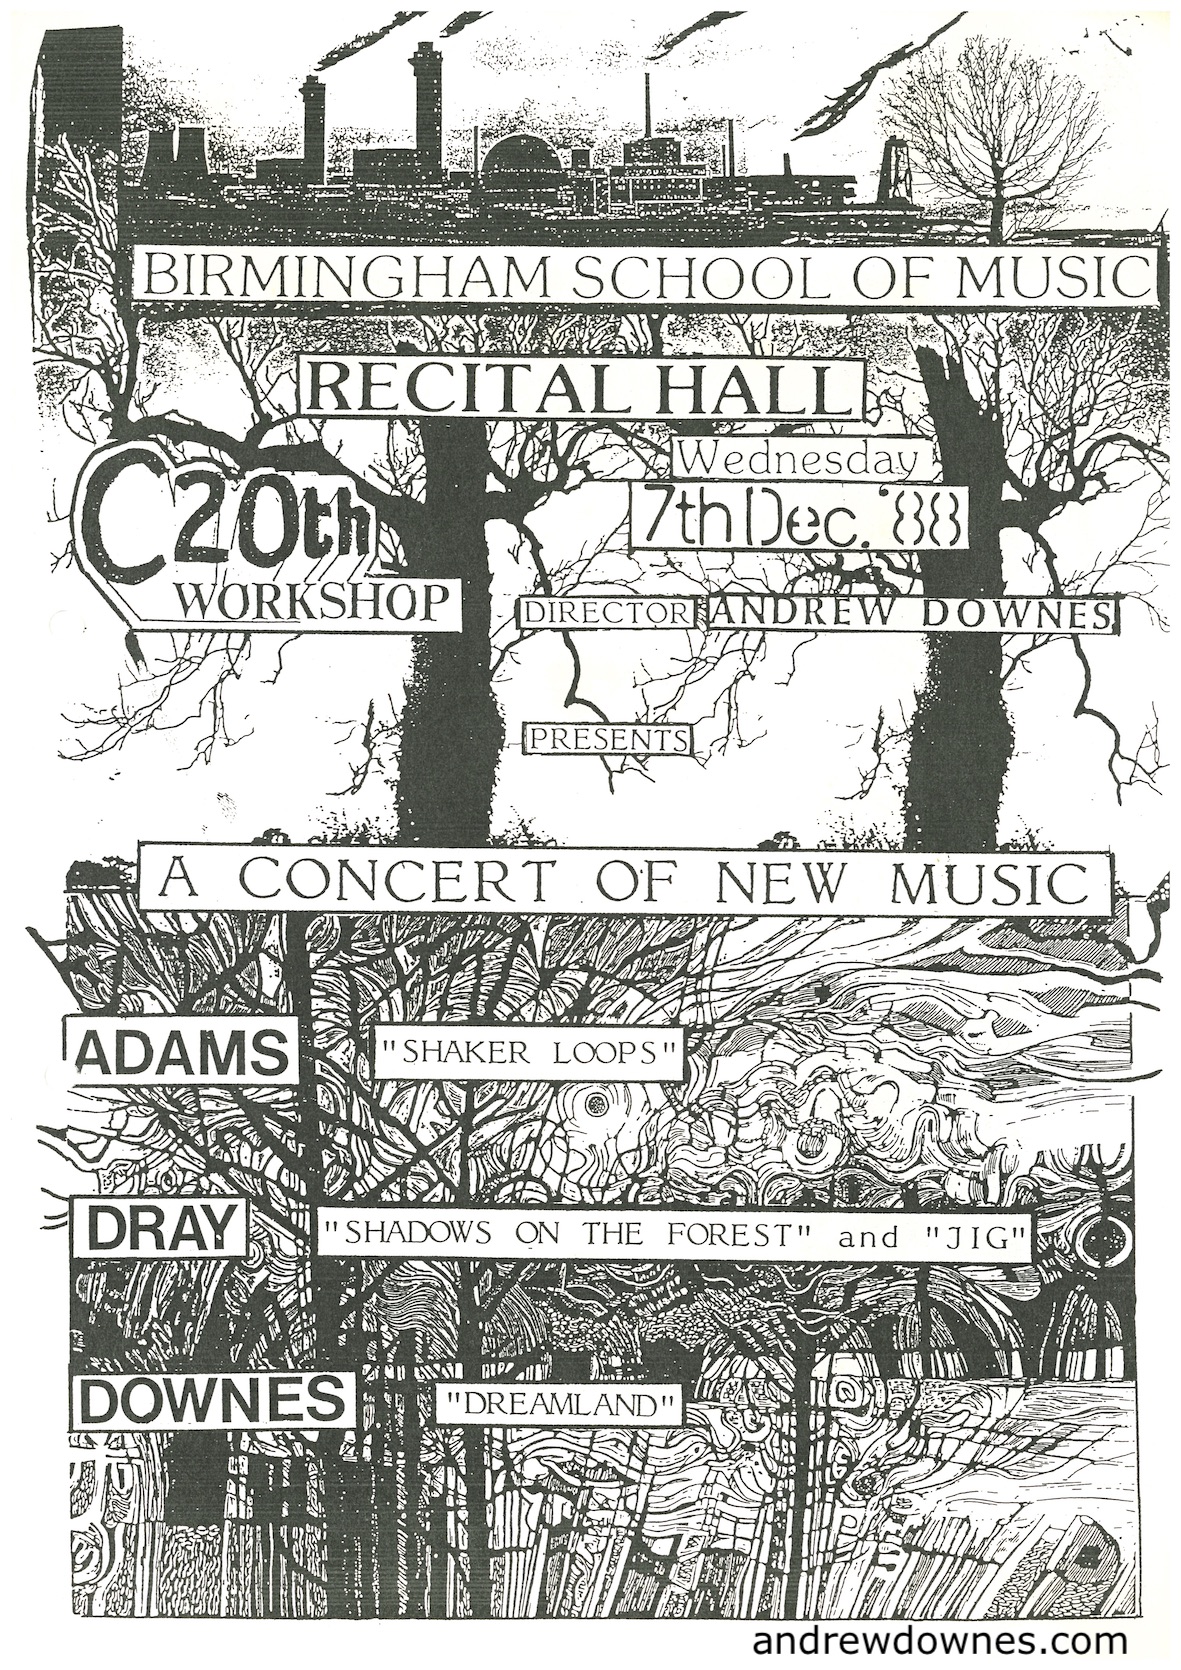 BIRMINGHAM SCHOOL OF MUSIC
RECITAL HALL
Wednesday
7th Dec. '88
C20th
WORKSHOP
DIRECTOR ANDREW DOWNES
PRESENTS
A CONCERT OF NEW MUSIC
ADAMS "SHAKER LOOPS"
DRAY "SHADOWS ON THE FOREST" and "JIG"
DOWNES "DREAMLAND"
andrewdownes.com